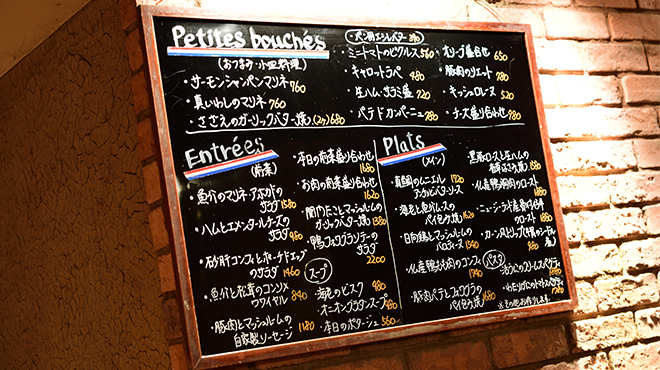 Petites bouchés
(おつまみ・小皿料理)
・サーモンシャンパンマリネ 760
・真いわしのマリネ 760
・さざえのガーリックバター焼(2ヶ) 680
・ミニトマトのピクルス 560
・キャロットラペ 480
・生ハムサラミ盛 720
・パテドカンパーニュ 780
・オリーブ盛合せ 650
・豚肉のリエット 780
・キッシュロレーヌ 520
・チーズ盛り合わせ 980
Entrées
(前菜)
・魚介のマリネ・アボカドの
サラダ 1580
・ハムとエメンタールチーズの
サラダ 980
・砂肝コンフィとポーチドエッグ
のサラダ 1460
・魚介と松茸のコンソメ
ロワイヤル 840
・豚肉とマッシュルームの
自家製ソーセージ 1180
・本日の前菜盛り合わせ
1680
・お肉の前菜盛り合わせ
1620
・関門だことマッシュルームの
ガーリックバター焼 1380
・鴨フォワグラソテーの
サラダ 2200
スープ
・海老のビスク 980
・オニオングラタンスープ 980
・本日のポタージュ 560
Plats
(メイン)
・真鯛のムニエル
アンチョビバターソース 1720
・海老と魚介ムースの
パイ包み焼 1620
・日向鶏とマッシュルームの
バロティーヌ 1340
・仏産鴨もも肉のコンフィ
1740
・豚肉パテとフォワグラの
パイ包み焼 1680
・仏産鴨胸肉のロースト
1880
・ニュージーランド産骨付仔羊
のロースト 1880
パスタ
※その他お作りします。